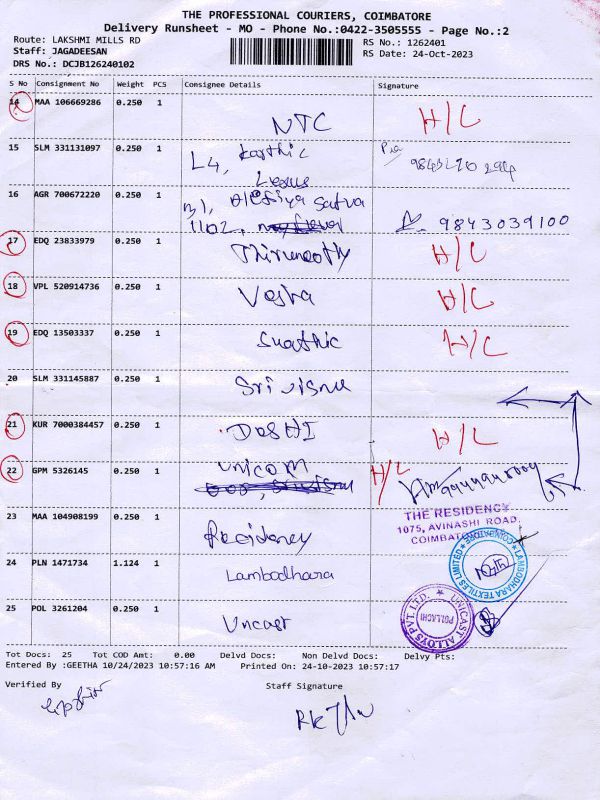 THE PROFESSIONAL COURIERS, COIMBATORE
Delivery Runsheet - MO - Phone No.:0422-3505555 - Page No.:2
Route: LAKSHMI MILLS RD
Staff: JAGADEESAN
DRS No.: DCJB126240102
RS No.: 1262401
RS Date: 24-Oct-2023
S No Consignment No Weight PCS Consignee Details Signature
14 MAA 106669286 0.250 1 NTC H/C
15 SLM 331131097 0.250 1 L4, Karthic
16 AGR 700672220 0.250 1 Satva
1102, 9843039100
17 EDQ 23833979 0.250 1 H/C
18 VPL 520914736 0.250 1 H/C
19 EDQ 13503337 0.250 1 H/C
20 SLM 331145887 0.250 1 Sri
21 KUR 7000384457 0.250 1 DOSHI H/C
22 GPM 5326145 0.250 1 UNICOM H/C
THE RESIDENCY
1075, AVINASHI ROAD,
23 MAA 104908199 0.250 1 Residency
24 PLN 1471734 1.124 1 Lambodhara
LAMBODHARA TEXTILES LIMITED
25 POL 3261204 0.250 1 Unicast
UNICAST ALLOYS PVT. LTD.
POLLACHI
Tot Docs: 25 Tot COD Amt: 0.00 Delvd Docs: Non Delvd Docs: Delvy Pts:
Entered By :GEETHA 10/24/2023 10:57:16 AM Printed On: 24-10-2023 10:57:17
Verified By Staff Signature